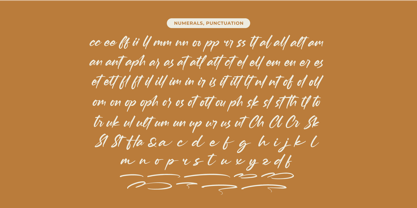 NUMERALS, PUNCTUATION
cc ee ff ii ll mm nn oo pp rr ss tt al all alt am
an ant aph ar as at all att ct el ell em en er es
et ett fl ft il ill im in ir is it itl lt nl nt of ol oll
om on op oph or os ot ott ou ph sk sl st th tl to
tr uk ul ult um un up ur us ut Ch Cl Cr Sk
Sl St tta a c d e f g h i j k l
m n o p r s t u x y z d f